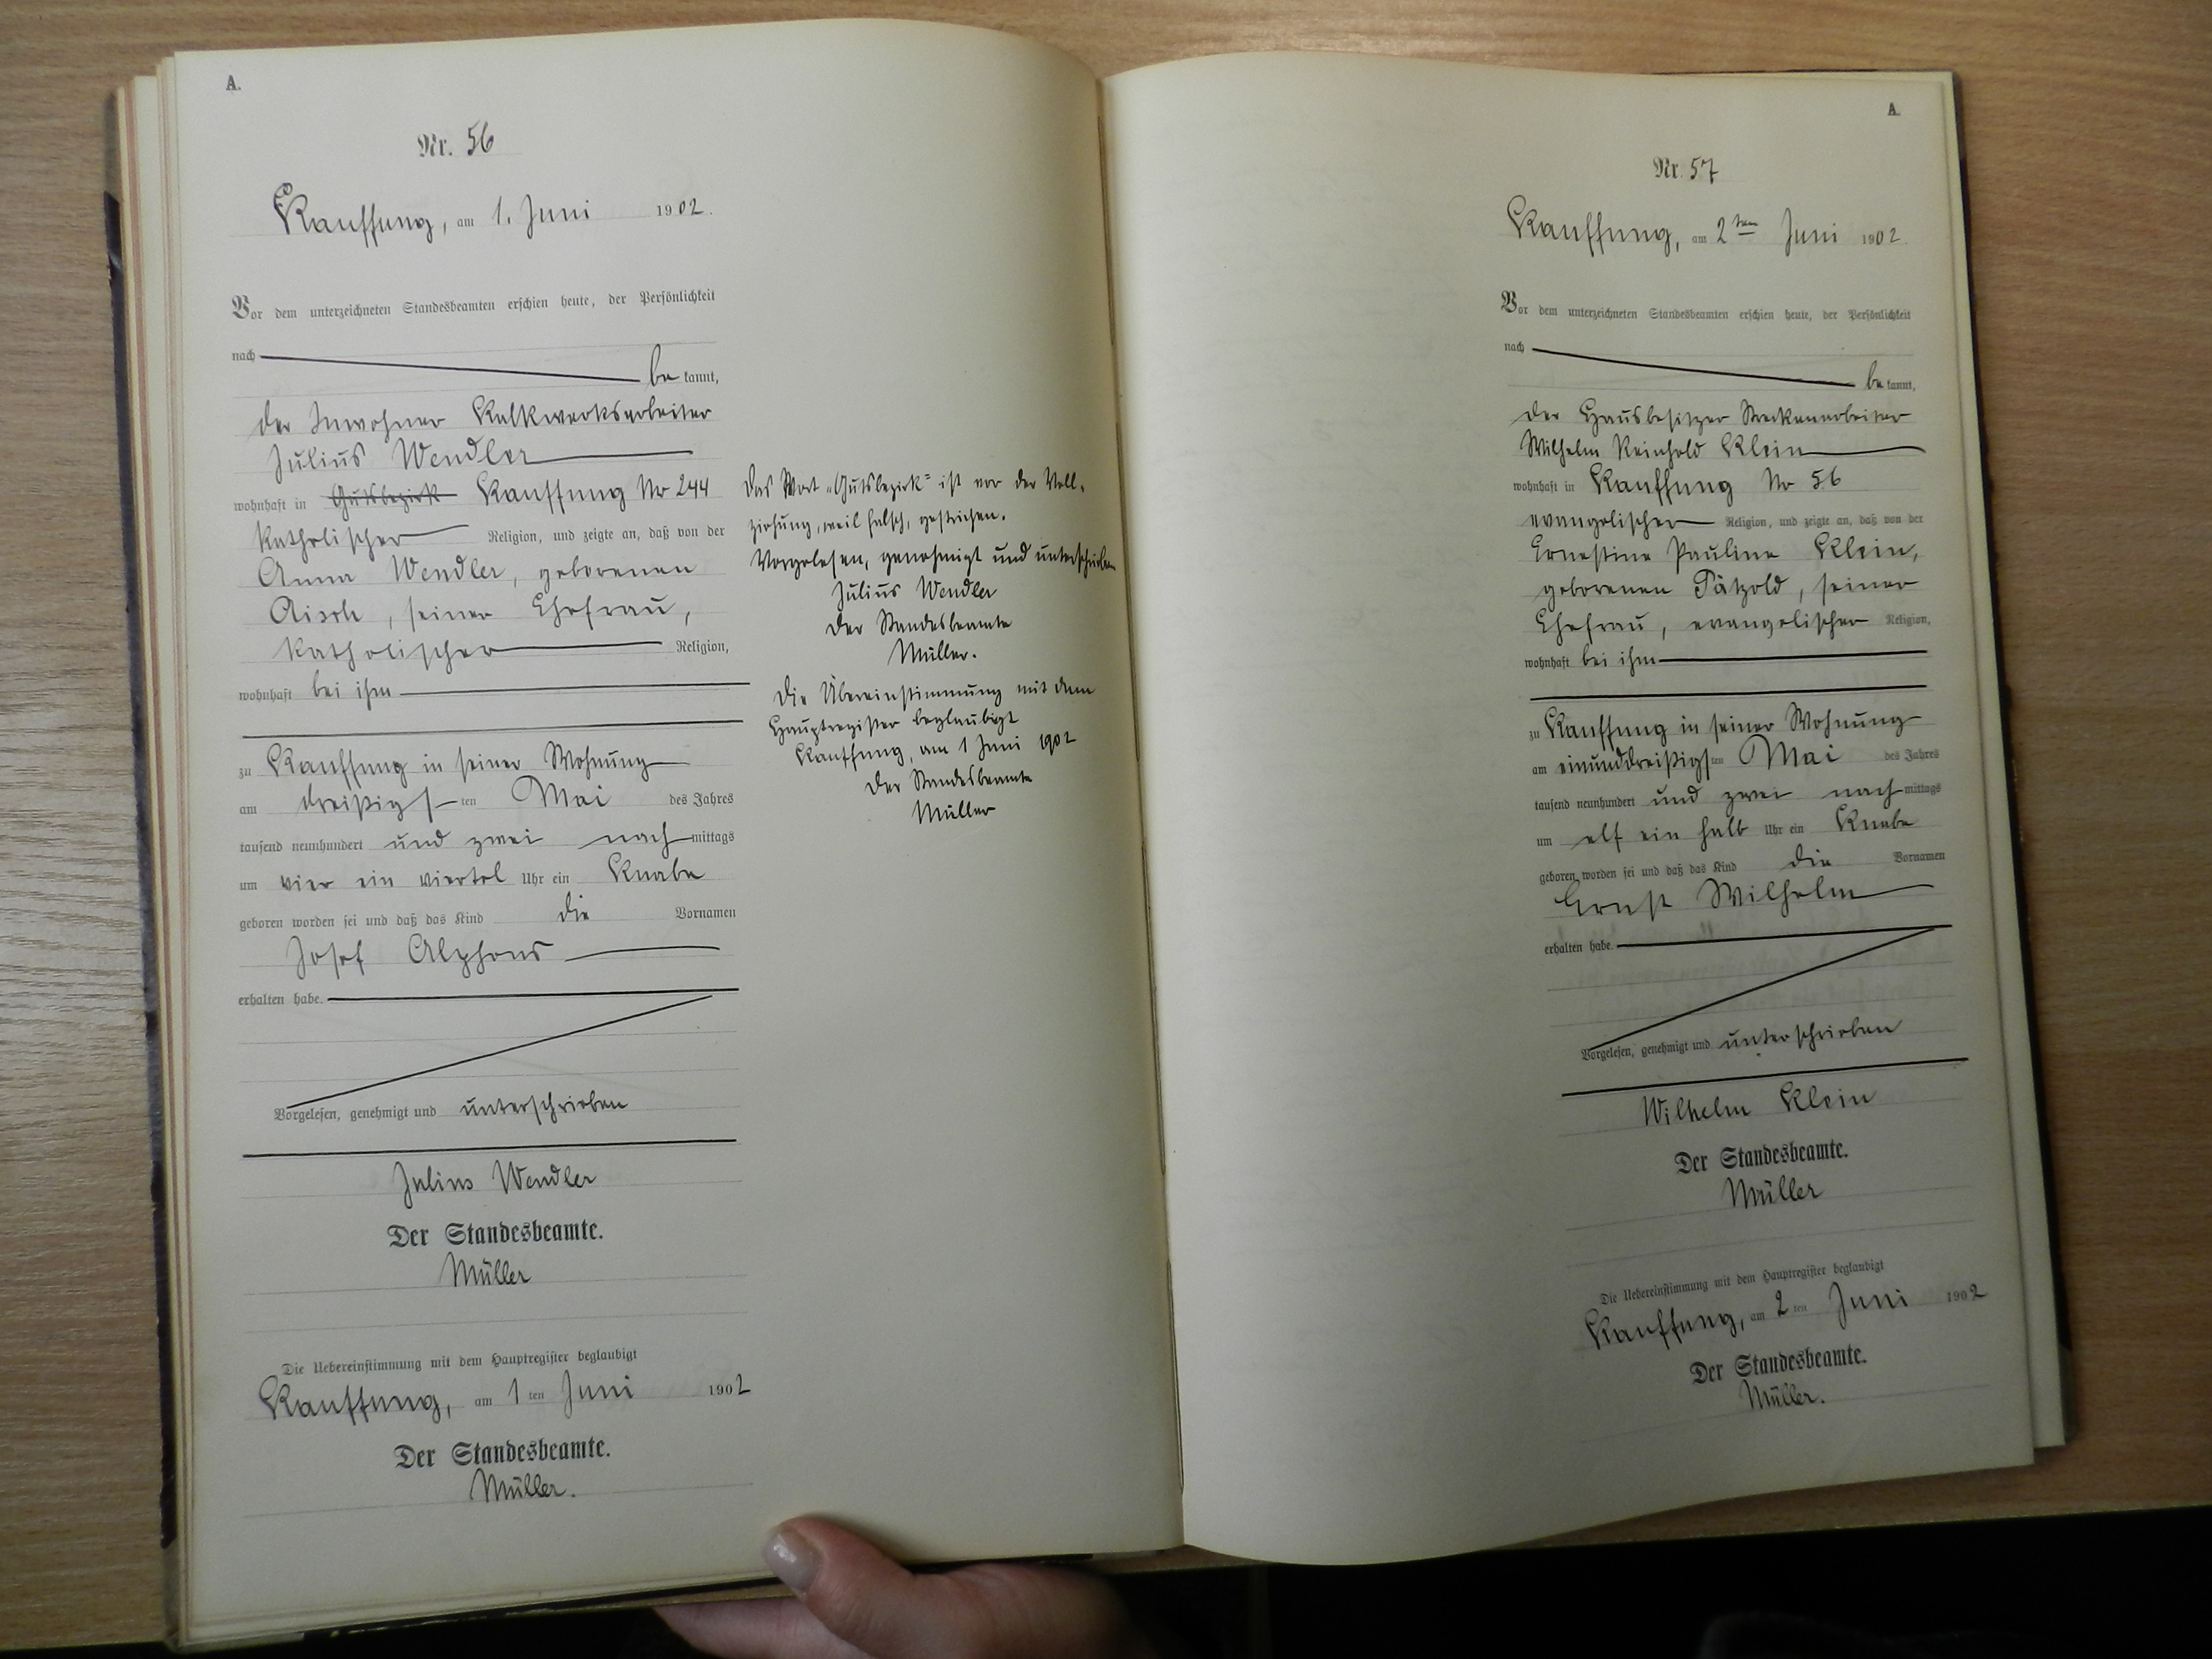 A.
Nr. 56
Kauffung, am 1. Juni 1902.
Vor dem unterzeichneten Standesbeamten erschien heute, der Persönlichkeit
nach
bekannt,
der Inwohner Kalkwerksarbeiter
Julius Wendler
wohnhaft in Gutsbezirk Kauffung No 244
katholischer Religion, und zeigte an, daß von der
Anna Wendler, geborenen
, seiner Ehefrau,
katholischer Religion,
wohnhaft bei ihm
zu Kauffung in seiner Wohnung
am dreißigsten Mai des Jahres
tausend neunhundert und zwei nachmittags
um vier ein viertel Uhr ein Knabe
geboren worden sei und daß das Kind die Vornamen
Josef Alphons
erhalten habe.
Vorgelesen, genehmigt und unterschrieben
Julius Wendler
Der Standesbeamte.
Müller
Die Uebereinstimmung mit dem Hauptregister beglaubigt
Kauffung, am 1ten Juni 1902
Der Standesbeamte.
Müller.
Das Wort „Gutsbezirk" ist vor der Voll-
ziehung, weil falsch, gestrichen.
Vorgelesen, genehmigt und unterschrieben
Julius Wendler
Der Standesbeamte
Müller.
Die Übereinstimmung mit dem
Hauptregister beglaubigt
Kauffung, am 1 Juni 1902
Der Standesbeamte
Müller
A.
Nr. 57
Kauffung, am 2ten Juni 1902.
Vor dem unterzeichneten Standesbeamten erschien heute, der Persönlichkeit
nach
bekannt,
der Hausbesitzer Streckenarbeiter
Wilhelm Reinhold Klein
wohnhaft in Kauffung No 56
evangelischer Religion, und zeigte an, daß von der
Ernestine Pauline Klein,
geborenen Pätzold, seiner
Ehefrau, evangelischer Religion,
wohnhaft bei ihm
zu Kauffung in seiner Wohnung
am einunddreißigsten Mai des Jahres
tausend neunhundert und zwei nachmittags
um elf ein halb Uhr ein Knabe
geboren worden sei und daß das Kind die Vornamen
Ernst Wilhelm
erhalten habe.
Vorgelesen, genehmigt und unterschrieben
Wilhelm Klein
Der Standesbeamte.
Müller
Die Uebereinstimmung mit dem Hauptregister beglaubigt
Kauffung, am 2ten Juni 1902
Der Standesbeamte.
Müller.